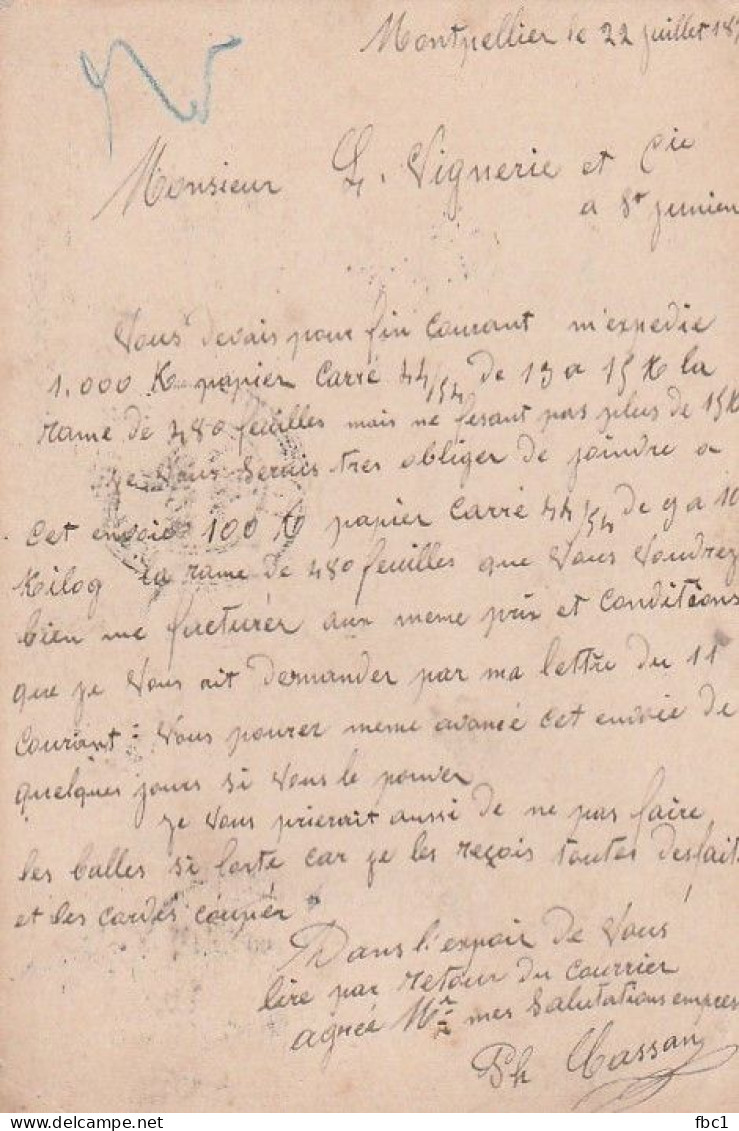 Montpellier le 22 juillet 18
Monsieur L. Vignerie et Cie
a St junien
Vous devais pour fin courant m'expedie
1.000 K papier Carré 44/54 de 13 a 15 K la
rame de 480 feuilles mais ne fesant pas plus de 15K
je vous serais tres obliger de joindre a
cet envoie 100 K papier carré 44/54 de 9 a 10
Kilog la rame de 480 feuilles que vous voudrez
bien me facturér aux meme prix et conditions
que je vous ait demander par ma lettre du 11
courant : vous pourez meme avancé cet envoie de
quelques jours si vous le pouvier
je vous prierait aussi de ne pas faire
les balles si forte car je les reçois toutes desfait
et les cordes coupér
Dans l'espoir de vous
lire par retour du courrier
agrée Mr mes salutations empres
Ph Cassan
fbc1